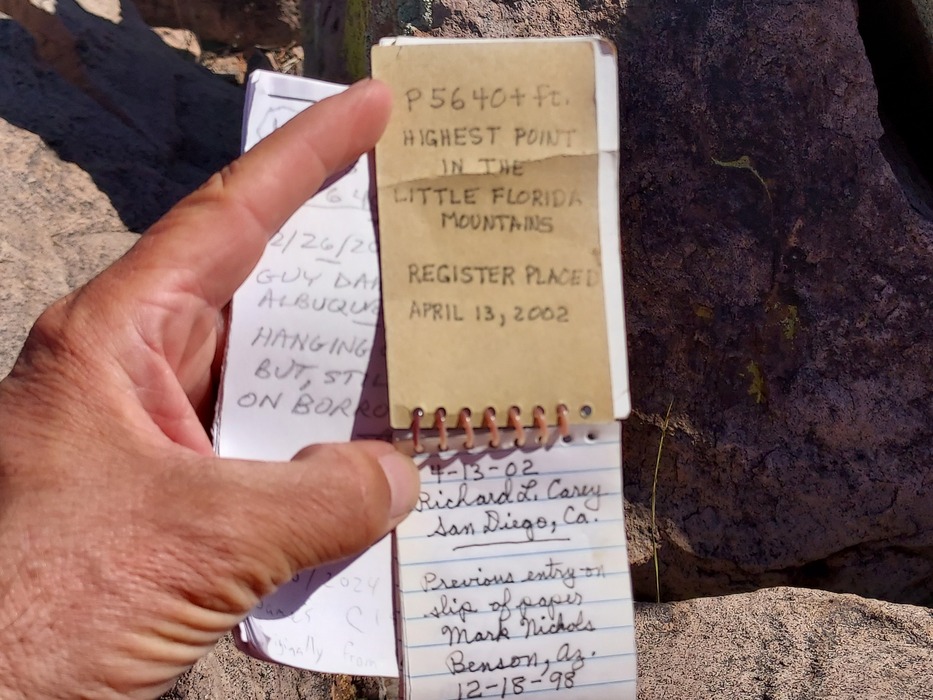 P5640+ ft.
HIGHEST POINT
IN THE
LITTLE FLORIDA
MOUNTAINS
REGISTER PLACED
APRIL 13, 2002
4-13-02
Richard L. Carey
San Diego, Ca.
Previous entry on
slip of paper
Mark Nichols
Benson, Az.
12-18-98
2/26/20
GUY
HANGING
BUT,
ON
2024
from